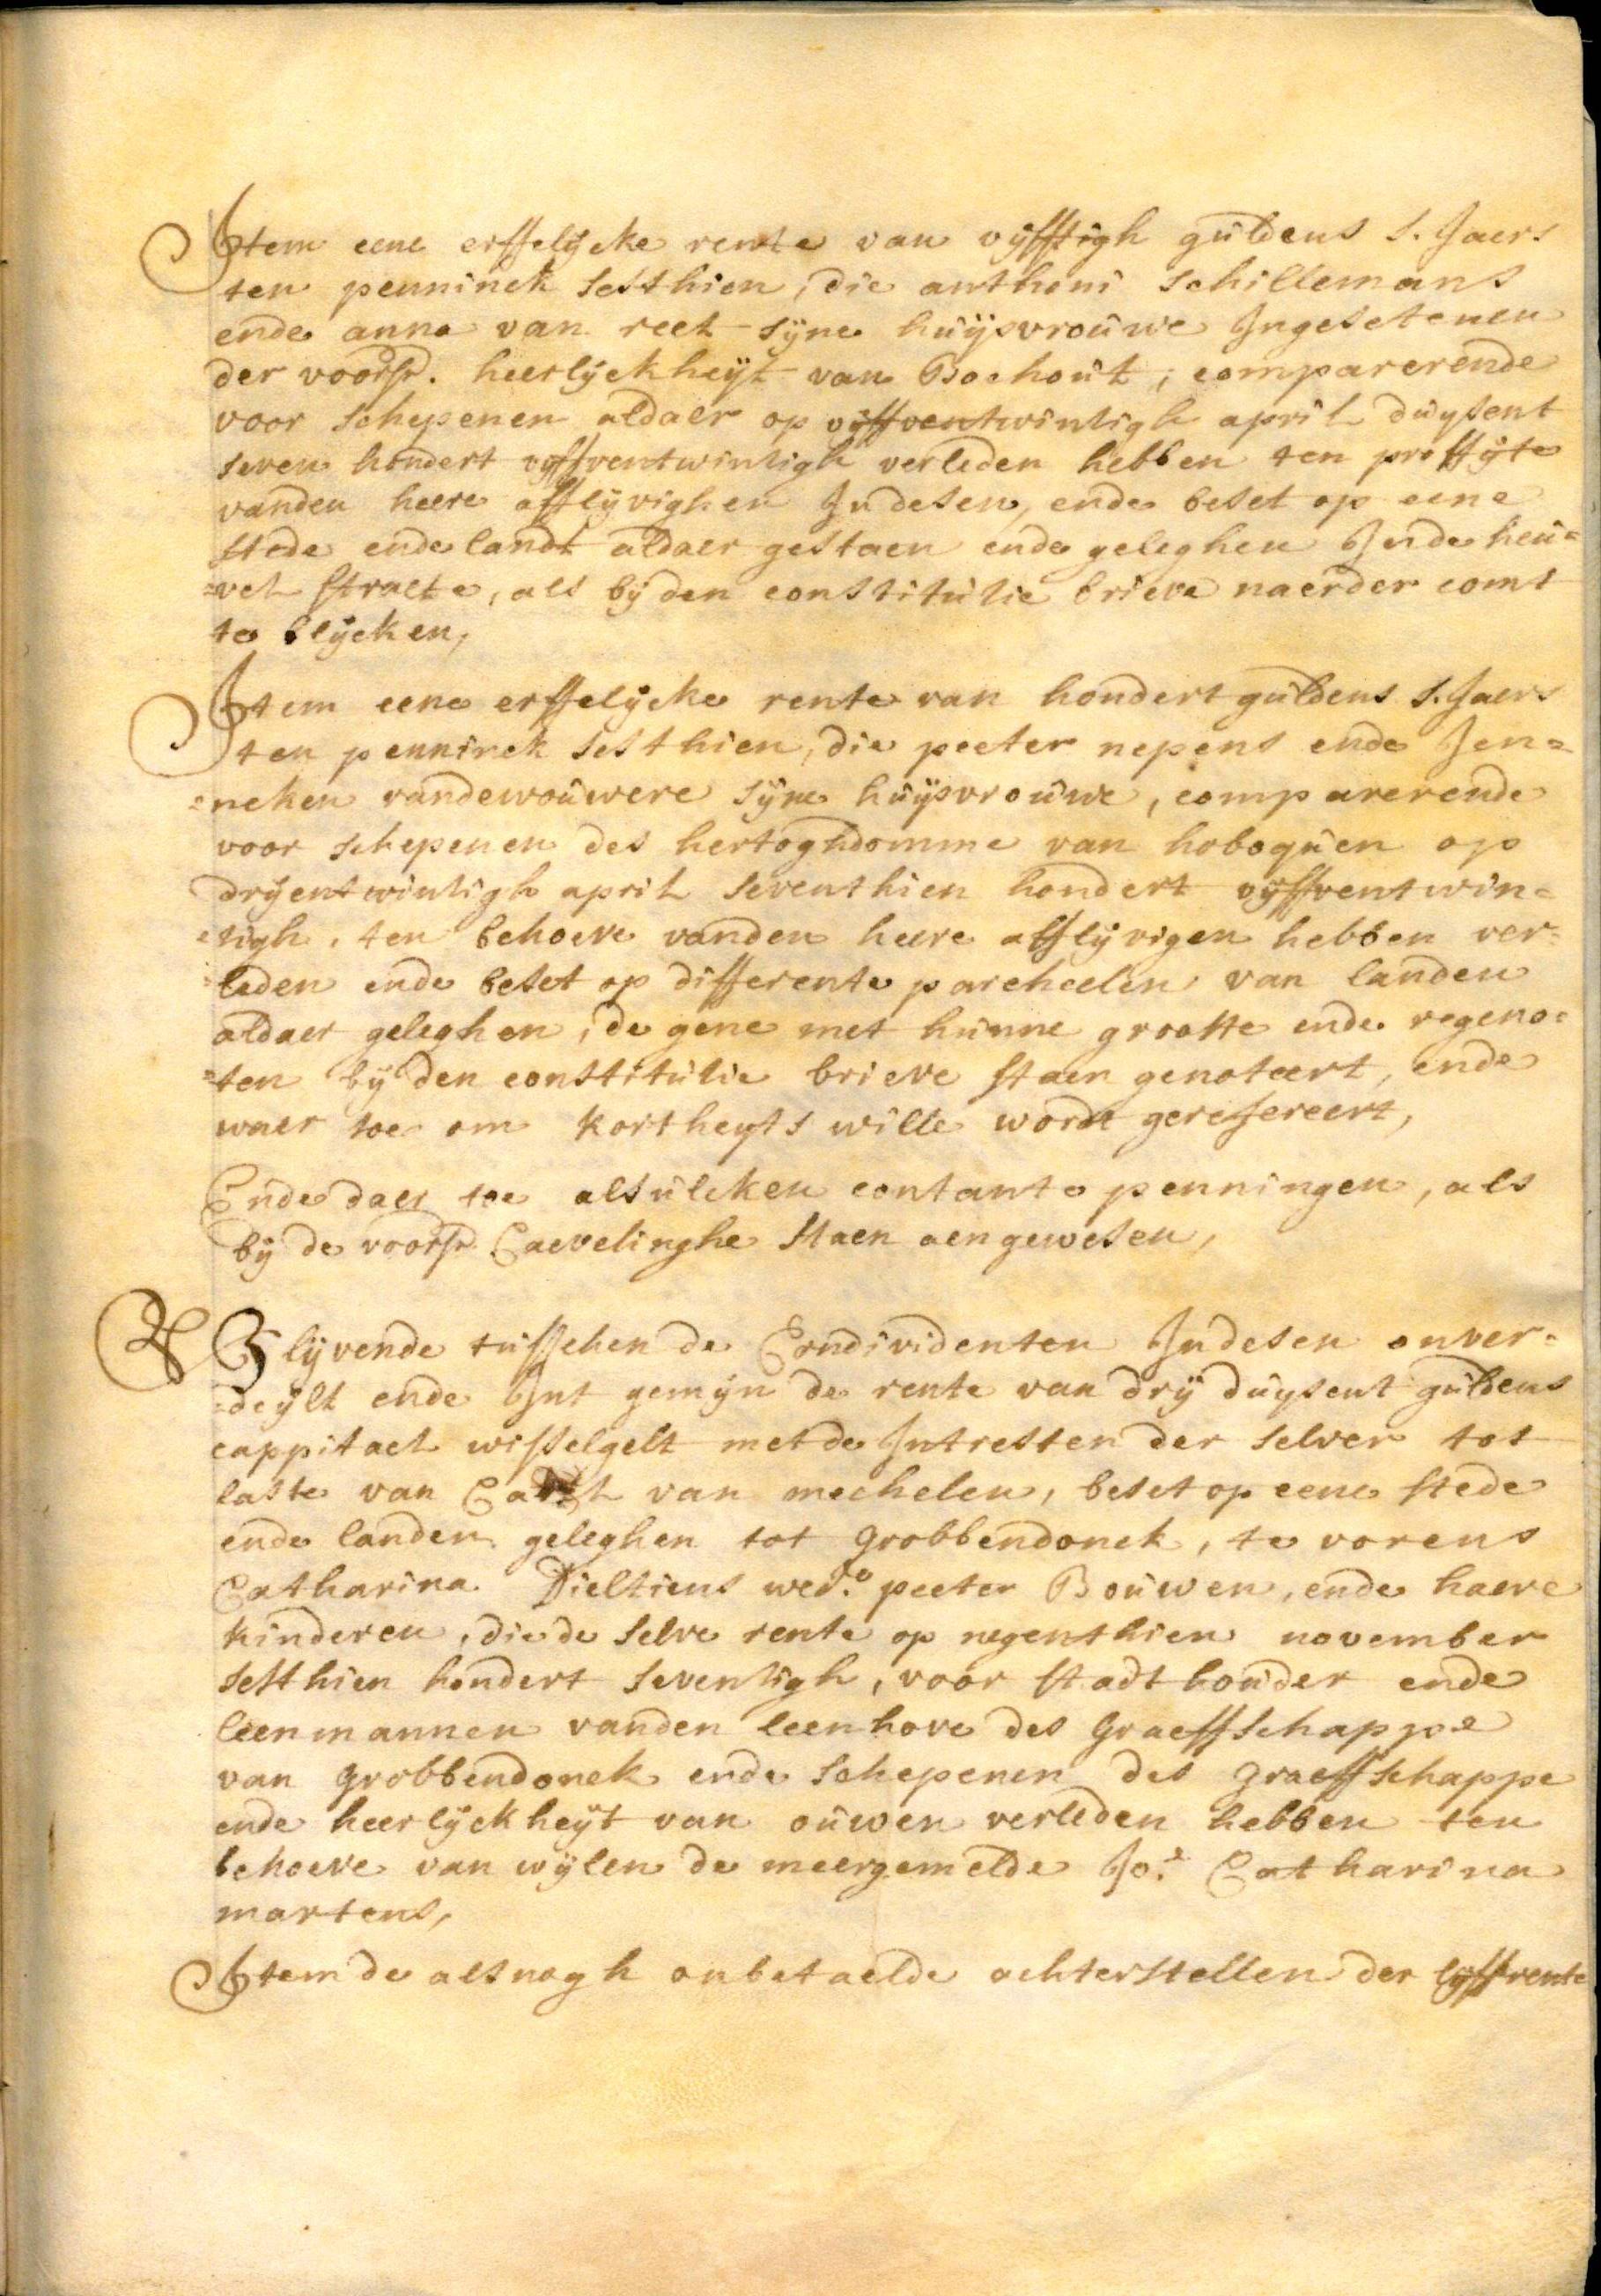 Item eene erffelycke rente van vyfftigh guldens s. Jaers
ten penninck sesthien, die anthoni schillemans
ende anna van reet syne huysvrouwe Ingesetenen
der voorsr. heerlyckheyt van Bochout, comparerende
voor schepenen aldaer op vyffventwintigh april duysent
seven hondert vyffventwintigh verleden hebben ten proffyte
vanden heere afflyvighen Indesen, ende beset op eene
stede ende landt aldaer gestaen ende geleghen Inde heu=
=vel straete, als by den constitutie brieve naerder comt
te blycken,
Item eene erffelycke rente van hondert guldens s. Jaers
ten penninck sesthien, die peeter nepens ende Jen=
=neken vandewouwere syne huysvrouwe, comparerende
voor schepenen des hertoghdomme van hoboquen op
dryentwintigh april seventhien hondert vyffventwin=
=tigh, ten behoeve vanden heere afflyvigen hebben ver=
=leden ende beset op differente parcheelen van landen
aldaer geleghen, de gene met hunne grootte ende regeno=
=ten by den constitutie brieve staen genoteert, ende
waer toe om kortheyts wille wordt gerefereert,
Ende daer toe alsulcken contante penningen, als
by de voorsr. Caevelinghe staen aengewesen,
Blyvende tusschen de Condividenten Indesen onver=
=deylt ende Int gemyn de rente van dry duysent guldens
cappitael wisselgelt met de Intresten der selver tot
laste van Carel van mechelen, beset op eene stede
ende landen geleghen tot grobbendonck, te vorens
Catharina Dieltiens wed.e peeter Bouwen, ende haere
kinderen, die de selve rente op negenthien november
sesthien hondert seventigh, voor stadthouder ende
leenmannen vanden leenhove des Graeffschappe
van grobbendonck ende schepenen des graeffschappe
ende heerlyckheyt van ouwen verleden hebben ten
behoeve van wylen de meergemelde Jo.e Catharina
martens,
Item de alsnogh onbetaelde achterstellen der lyffrente